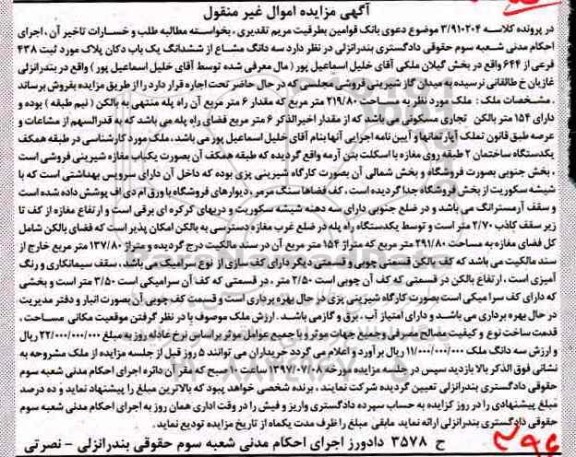 آگهی مزایده اموال غیر منقول
در پرونده کلاسه ۳/۹۱۰۲۰۴ موضوع دعوی بانک قوامین بطرفیت مریم تقدیری، بخواسته مطالبه طلب و خسارات تاخیر آن، اجرای
احکام مدنی شعبه سوم حقوقی دادگستری بندرانزلی در نظر دارد سه دانگ مشاع از ششدانگ یک باب دکان پلاک مورد ثبت ۴۳۸
فرعی از ۶۴۴ واقع در بخش گیلان ملکی آقای خلیل اسماعیل پور (مال معرفی شده توسط آقای خلیل اسماعیل پور) واقع در بندرانزلی
غازیان خ طالقانی نرسیده به میدان گاز شیرینی فروشی مجلسی که در حال حاضر تحت اجاره قرار دارد را از طریق مزایده بفروش برساند
. مشخصات ملک: ملک مورد نظر به مساحت ۲۱۹/۸۰ متر مربع که مقدار ۶ متر مربع آن راه پله منتهی به بالکن (نیم طبقه) بوده و
دارای ۱۵۴ متر بالکن تجاری مسکونی می باشد که از مقدار اخیرالذکر ۶ متر مربع فضای راه پله می باشد که به قدرالسهم از مشاعات و
عرصه طبق قانون تملک آپارتمانها و آیین نامه اجرایی آنها بنام آقای خلیل اسماعیل پور می باشد، ملک مورد کارشناسی در طبقه همکف
یکدستگاه ساختمان ۲ طبقه روی مغازه با اسکلت بتن آرمه واقع گردیده که طبقه همکف آن بصورت یکباب مغازه شیرینی فروشی است
، بخش جنوبی بصورت فروشگاه و بخش شمالی آن بصورت کارگاه شیرینی پزی بوده که داخل آن دارای سرویس بهداشتی است که با
شیشه سکوریت از بخش فروشگاه جدا گردیده است، کف فضاها سنگ مرمر، دیوارهای فروشگاه با ورق ام دی اف پوشش داده شده است
و سقف آرمسترانگ می باشد و در ضلع جنوبی دارای سه دهنه شیشه سکوریت و دربهای کرکره ای برقی است و ارتفاع مغازه از کف تا
زیر سقف کاذب ۲/۷۰ متر است و توسط یکدستگاه راه پله در ضلع غرب مغازه دسترسی به بالکن امکان پذیر است که فضای بالکن شامل
کل فضای مغازه به مساحت ۲۹۱/۸۰ متر مربع که متراژ ۱۵۴ متر مربع آن در سند مالکیت درج گردیده و متراژ ۱۳۷/۸۰ متر مربع خارج از
سند مالکیت می باشد که کف بالکن قسمتی چوبی و قسمتی دیگر دارای کف سازی از نوع سرامیک می باشد، سقف سیمانکاری و رنگ
آمیزی است، ارتفاع بالکن در قسمتی که کف آن چوبی است ۲/۵۰ متر، در قسمتی که کف آن سرامیکی است ۳/۵۰ متر است و بخشی
که دارای کف سرامیکی است بصورت کارگاه شیرینی پزی در حال بهره برداری است و قسمت کف چوبی آن بصورت انبار و دفتر مدیریت
در حال بهره برداری می باشد و دارای امتیاز آب، برق و گاز می باشد. ارزش ملک موصوف با در نظر گرفتن موقعیت مکانی، مساحت،
قدمت ساخت نوع و کیفیت مصالح مصرفی و جمیع جهات موثر و با جمیع عوامل موثر براساس نرخ عادله روز به مبلغ ۲۲/۰۰۰/۰۰۰/۰۰۰ ریال
و ارزش سه دانگ ملک ۱۱/۰۰۰/۰۰۰/۰۰۰ ریال برآورد و اعلام می گردد خریداران می توانند ۵ روز قبل از جلسه مزایده از ملک مشروحه به
نشانی فوق الذکر بالا بازدید سپس در جلسه مزایده مورخه ۱۳۹۷/۰۷/۰۸ ساعت ۱۰ صبح که مقر آن دائره اجرای احکام مدنی شعبه سوم
حقوقی دادگستری بندرانزلی تعیین گردیده شرکت نمایند، برنده شخصی خواهد بود که بالاترین مبلغ را پیشنهاد نماید و ده درصد
مبلغ پیشنهادی را در روز مزایده به حساب سپرده دادگستری واریز و فیش را در وقت اداری همان روز به اجرای احکام مدنی شعبه سوم
حقوقی دادگستری بندرانزلی ارائه نماید مابقی مبلغ را ظرف مدت یکماه از تاریخ مزایده تودیع نماید.
ح ۳۵۷۸ دادورز اجرای احکام مدنی شعبه سوم حقوقی بندرانزلی - نصرتی